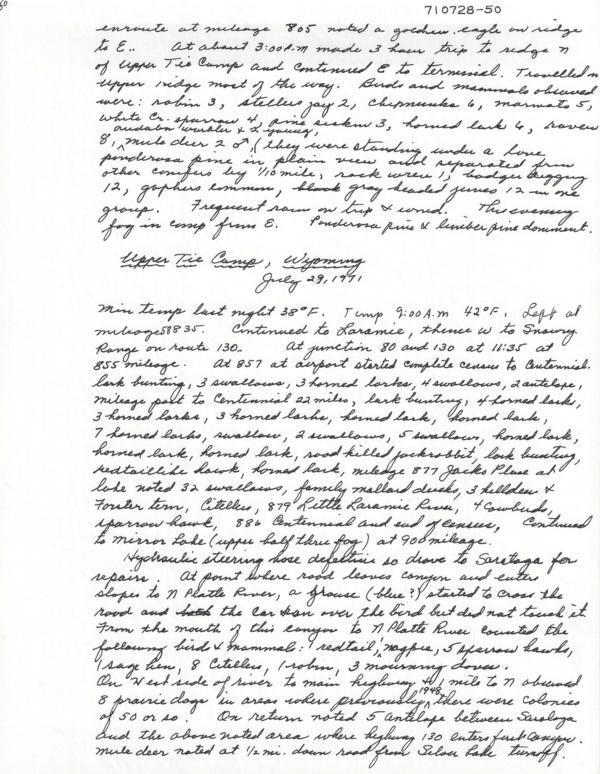 60
710728-50
enroute at mileage 805 noted a golden eagle on ridge
to E.. At about 3:00 P.M made 3 hour trip to ridge N
of Upper Tie Camp and continued E to terminal. Travelled on
upper ridge most of the way. Birds and mammals observed
were: robin 3, stellers jay 2, chipmunks 6, marmots 5,
white cr. sparrow 4, pine siskin 3, horned lark 6, raven
audubon warbler & 2 young,
8, mule deer 2 ♂, (they were standing under a lone
ponderosa pine in plain view and separated from
other conifers by 1/10 mile, rock wren 1, badger digging
12, gophers common, black gray headed junco 12 in one
group. Frequent rain on trip & wind. This evening
fog in camp from E. Ponderosa pine & limber pine dominent.
Upper Tie Camp, Wyoming
July 29, 1971
Min temp last night 38°F. Temp 9:00 A.M 42°F. Left at
mileage 58835. Continued to Laramie, thence W to Snowy
Range on route 130. At junction 80 and 130 at 11:35 at
855 mileage. At 857 at airport started complete census to Centennial.
lark bunting, 3 swallows, 3 horned larks, 4 swallows, 2 antelope,
mileage post to Centennial 22 miles, lark bunting, 4 horned larks,
3 horned larks, 3 horned larks, horned lark, horned lark,
7 horned larks, swallow, 2 swallows, 5 swallows, horned lark,
horned lark, horned lark, road killed jackrabbit, lark bunting,
redtaillike hawk, horned lark, mileage 877 Jacks Place at
lake noted 32 swallows, family mallard ducks, 3 killdeer &
Forster tern, Citellus, 879 Little Laramie River, 4 cowbirds,
sparrow hawk, 886 Centennial and end of census, Continued
to Mirror Lake (upper half thru fog) at 900 mileage.
Hydraulic steering hose defective so drove to Saratoga for
repairs. At point where road leaves canyon and enters
slopes to N Platte River, a grouse (blue?) started to cross the
road and the car ran over the bird but did not touch it.
From the mouth of this canyon to N Platte River counted the
following birds & mammals: 1 redtail, magpie, 5 sparrow hawks,
1 sage hen, 8 Citellus, 1 robin, 3 mourning doves.
On West side of river to main highway & 1 mile to N observed
1948
8 prairie dogs in areas where previously there were colonies
of 50 or so. On return noted 5 antelope between Saratoga
and the above noted area where highway 130 enters canyon.
mule deer noted at 1/2 mi. down road from Silver Lake turnoff.